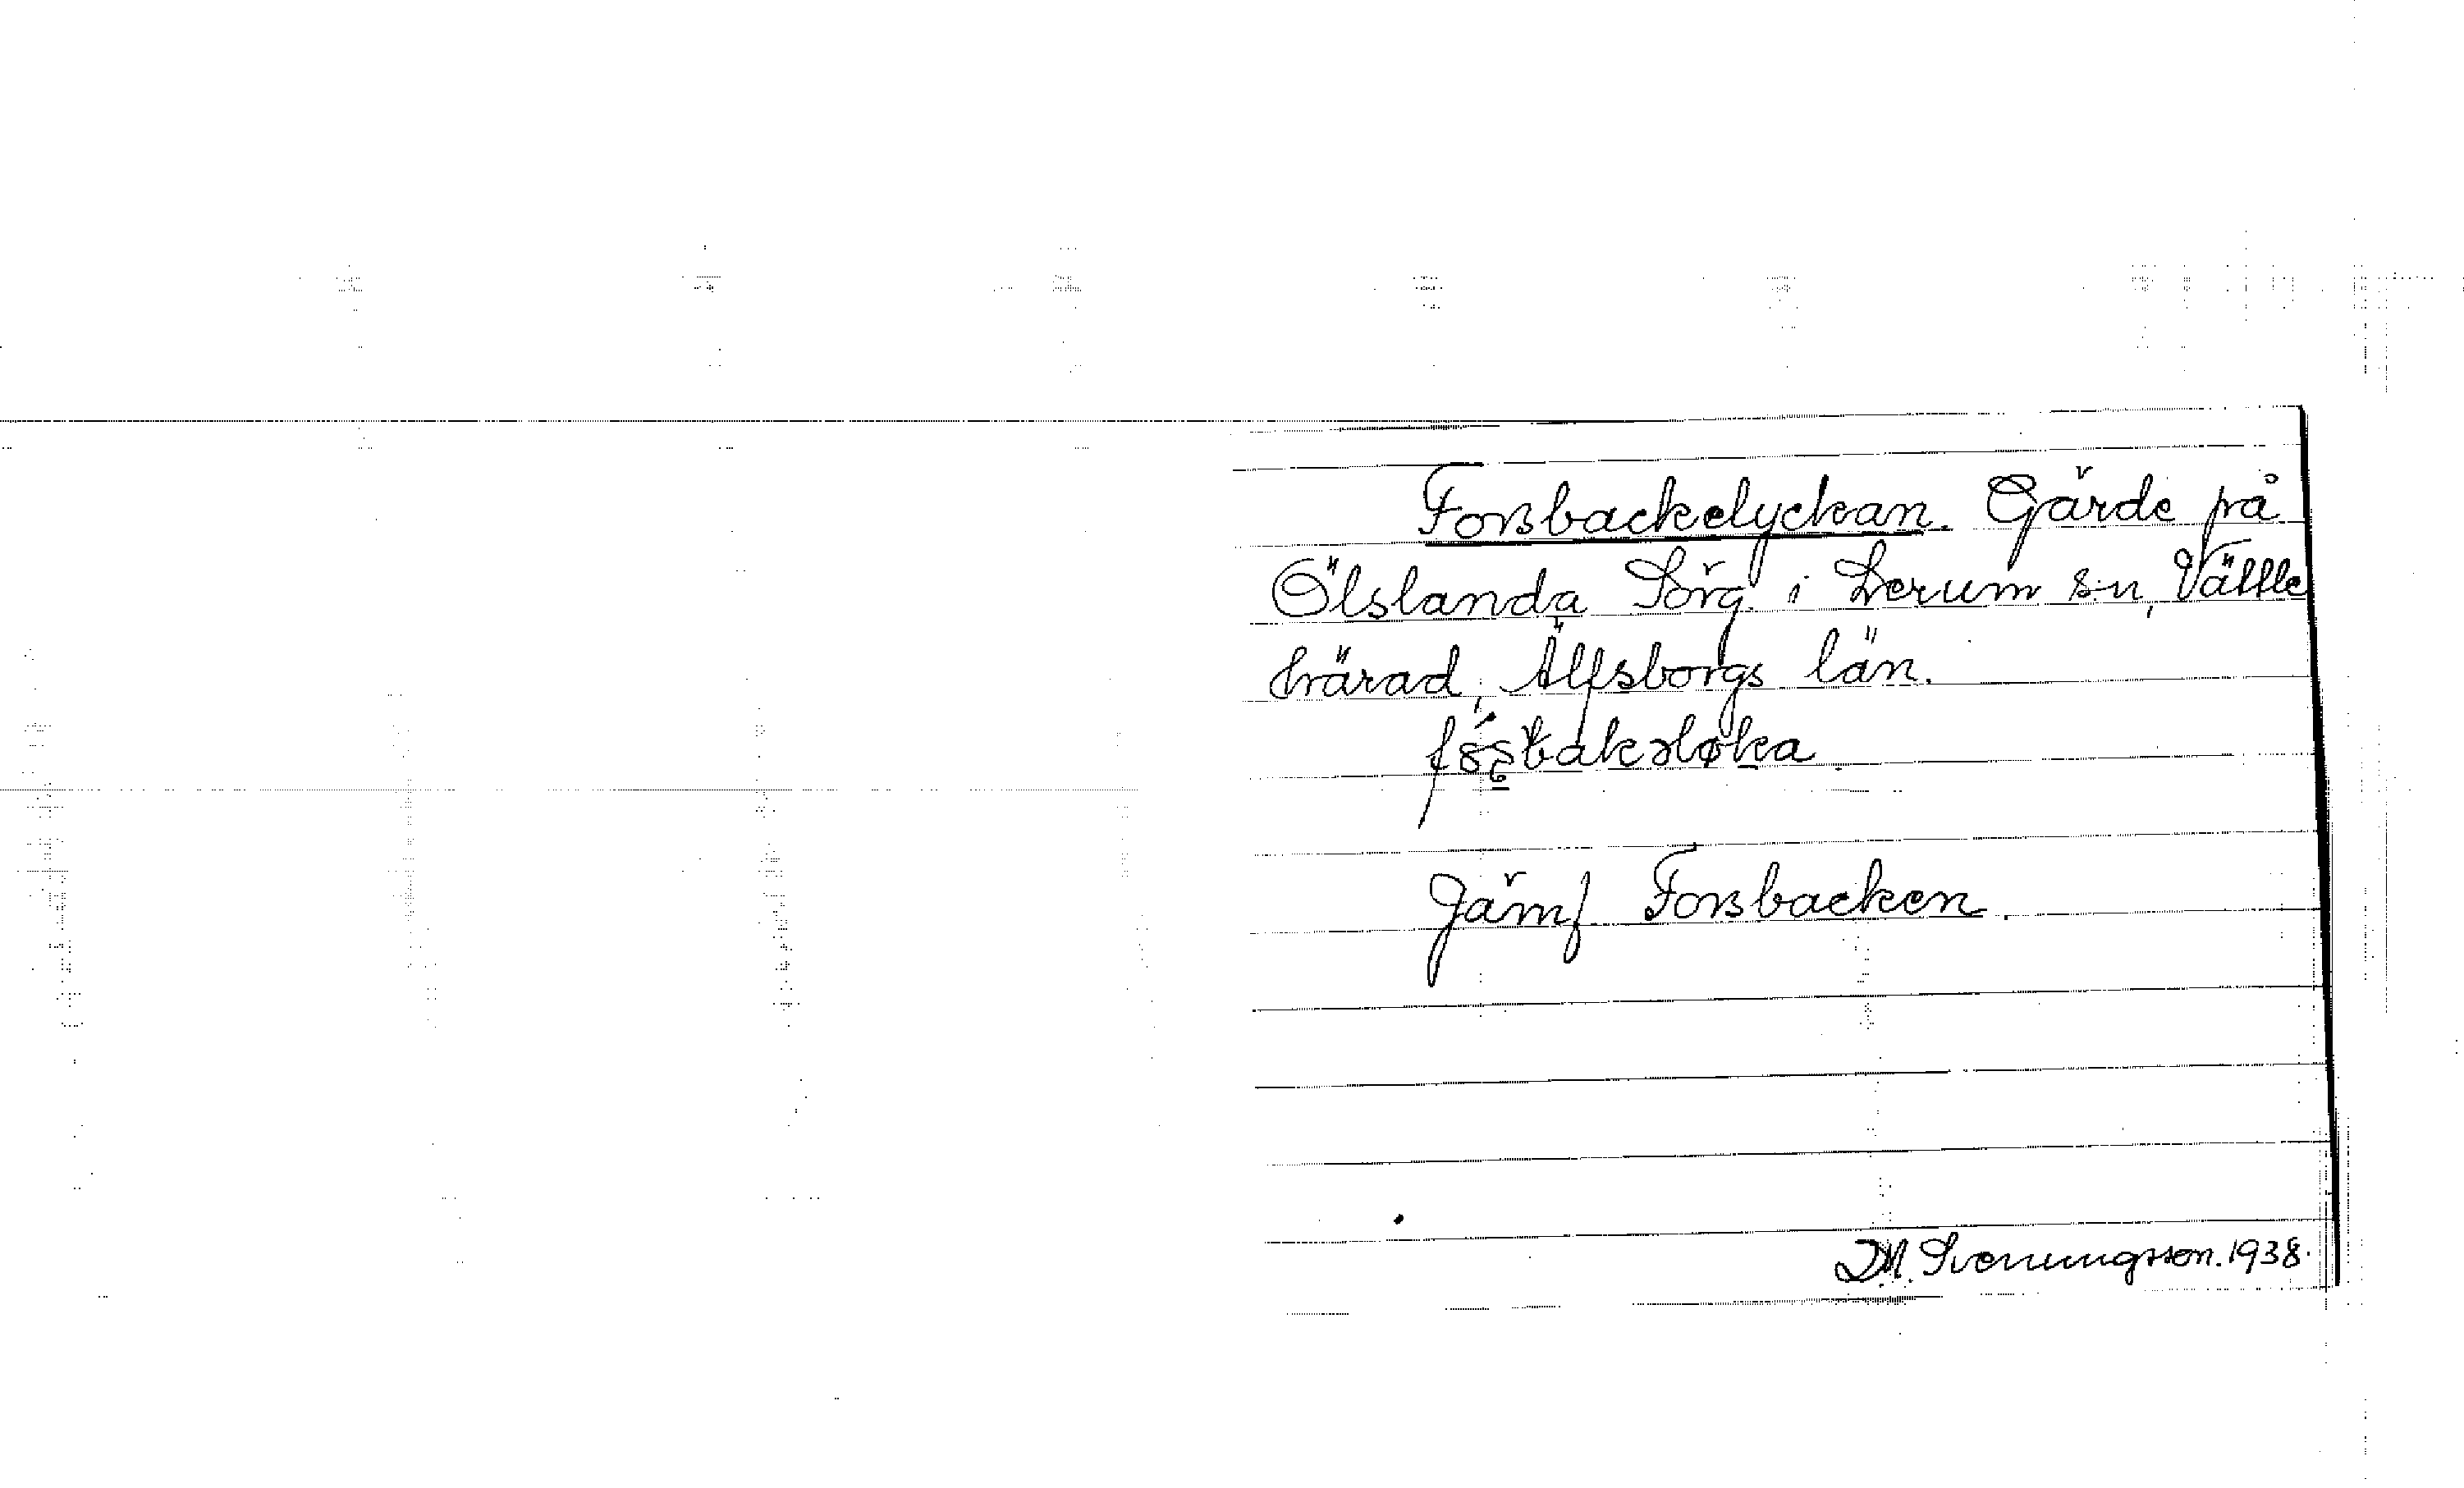 Forsbackelyckan. Gärde på
Ölslanda Sörg. i Lerum sn, Vättle
härad, Älfsborgs län.
Jämf Forsbacken.
D.M. Svenungsson. 1938.